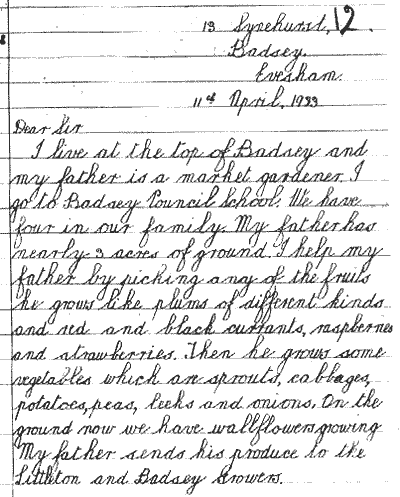 13 Synehurst, 12.
Badsey.
Evesham.
11th April, 1933
Dear Sir
I live at the top of Badsey and
my father is a market gardener. I
go to Badsey Council School. We have
four in our family. My father has
nearly 3 acres of ground. I help my
father by picking any of the fruits
he grows like plums of different kinds
and red and black currants, raspberries
and strawberries. Then he grows some
vegetables which are sprouts, cabbages,
potatoes, peas, leeks and onions. On the
ground now we have wallflowers growing
My father sends his produce to the
Littleton and Badsey Growers.